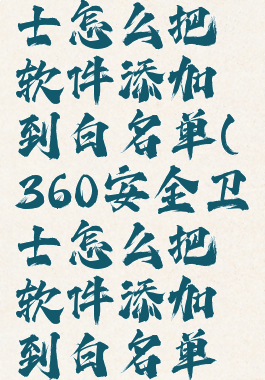 士怎么把
软件添加
到白名单(
360安全卫
士怎么把
软件添加
到白名单